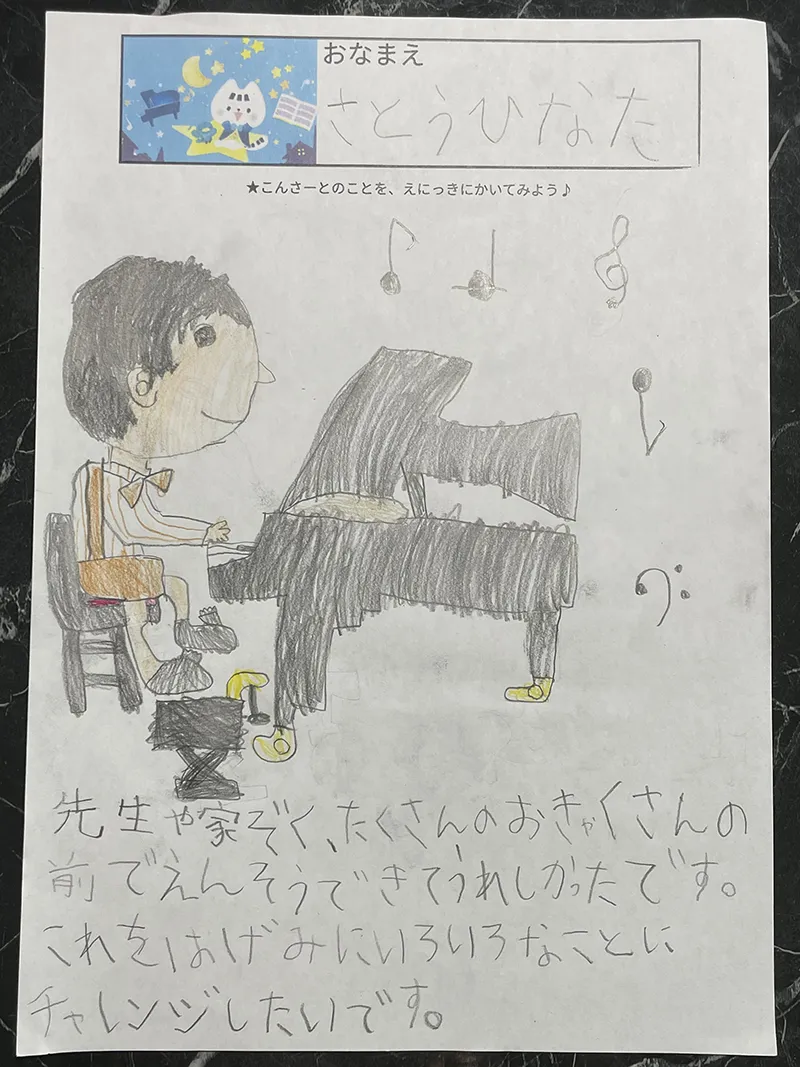 おなまえ
さとうひなた
★こんさーとのことを、えにっきにかいてみよう♪
先生や家ぞく、たくさんのおきゃくさんの
前でえんそうできてうれしかったです。
これをはげみにいろいろなことに
チャレンジしたいです。